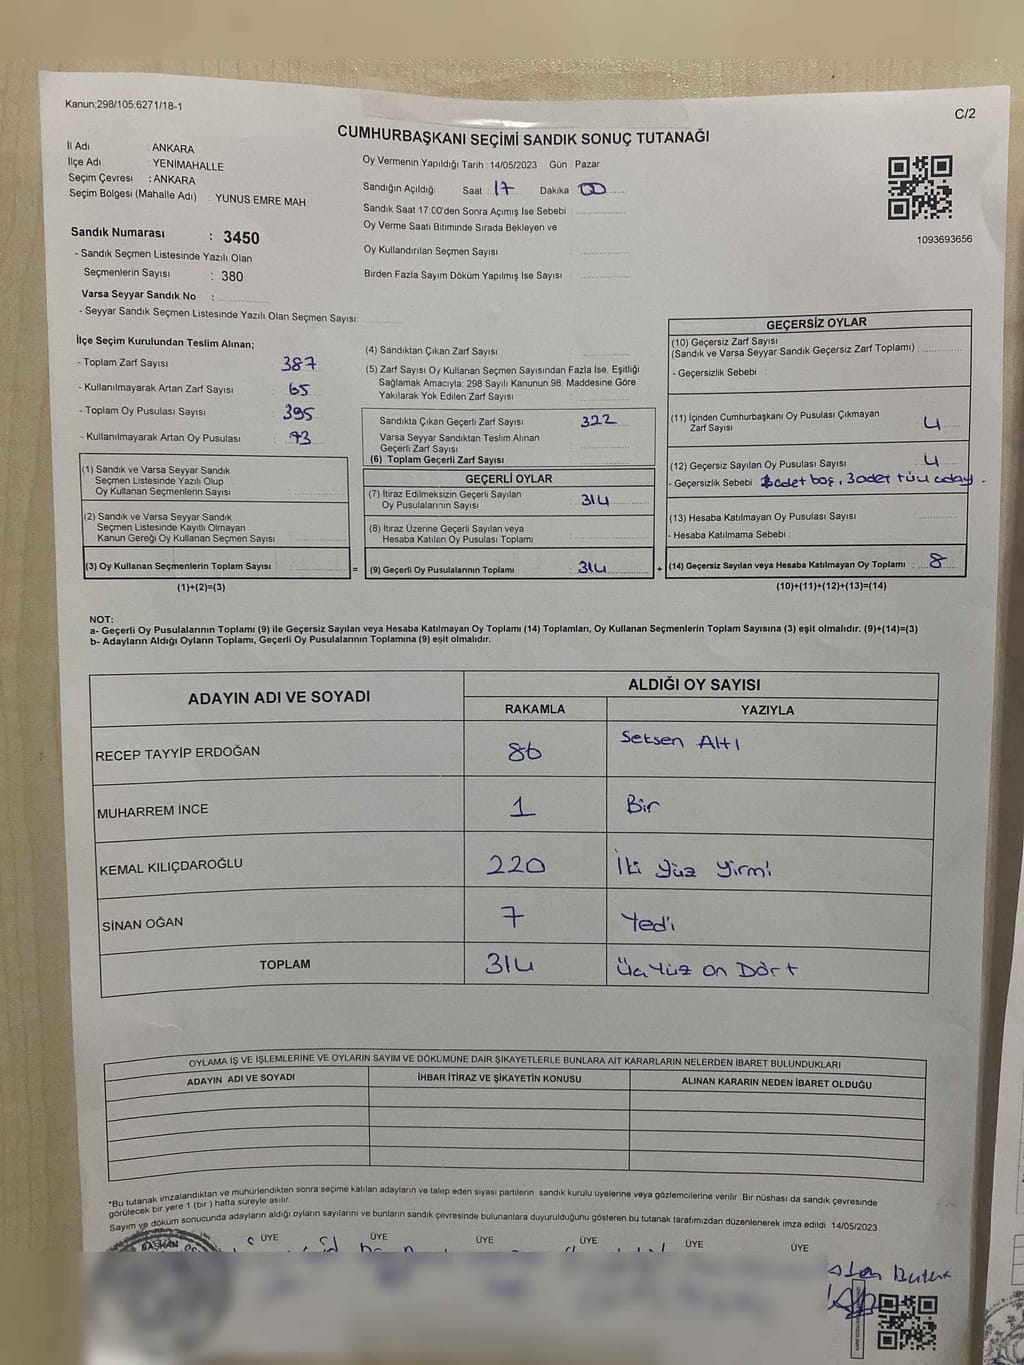 Kanun;298/105;6271/18-1
C/2
CUMHURBAŞKANI SEÇİMİ SANDIK SONUÇ TUTANAĞI
İl Adı : ANKARA
İlçe Adı : YENİMAHALLE
Seçim Çevresi : ANKARA
Seçim Bölgesi (Mahalle Adı) : YUNUS EMRE MAH
Sandık Numarası : 3450
- Sandık Seçmen Listesinde Yazılı Olan
Seçmenlerin Sayısı : 380
Varsa Seyyar Sandık No :
- Seyyar Sandık Seçmen Listesinde Yazılı Olan Seçmen Sayısı:
Oy Vermenin Yapıldığı Tarih :14/05/2023 Gün : Pazar
Sandığın Açıldığı Saat : 17 Dakika : 00
Sandık Saat 17:00'den Sonra Açımış İse Sebebi :
Oy Verme Saati Bitiminde Sırada Bekleyen ve
Oy Kullandırılan Seçmen Sayısı :
Birden Fazla Sayım Döküm Yapılmış İse Sayısı :
1093693656
İlçe Seçim Kurulundan Teslim Alınan;
- Toplam Zarf Sayısı : 387
- Kullanılmayarak Artan Zarf Sayısı : 65
- Toplam Oy Pusulası Sayısı : 395
- Kullanılmayarak Artan Oy Pusulası : 73
(1) Sandık ve Varsa Seyyar Sandık
Seçmen Listesinde Yazılı Olup
Oy Kullanan Seçmenlerin Sayısı :
(2) Sandık ve Varsa Seyyar Sandık
Seçmen Listesinde Kayıtlı Olmayan
Kanun Gereği Oy Kullanan Seçmen Sayısı :
(3) Oy Kullanan Seçmenlerin Toplam Sayısı :
(1)+(2)=(3)
(4) Sandıktan Çıkan Zarf Sayısı :
(5) Zarf Sayısı Oy Kullanan Seçmen Sayısından Fazla İse, Eşitliği
Sağlamak Amacıyla; 298 Sayılı Kanunun 98. Maddesine Göre
Yakılarak Yok Edilen Zarf Sayısı :
Sandıkta Çıkan Geçerli Zarf Sayısı : 322
Varsa Seyyar Sandıktan Teslim Alınan
Geçerli Zarf Sayısı :
(6) Toplam Geçerli Zarf Sayısı :
GEÇERLİ OYLAR
(7) İtiraz Edilmeksizin Geçerli Sayılan
Oy Pusulalarının Sayısı : 314
(8) İtiraz Üzerine Geçerli Sayılan veya
Hesaba Katılan Oy Pusulası Toplamı :
= (9) Geçerli Oy Pusulalarının Toplamı : 314
GEÇERSİZ OYLAR
(10) Geçersiz Zarf Sayısı
(Sandık ve Varsa Seyyar Sandık Geçersiz Zarf Toplamı) :
- Geçersizlik Sebebi :
(11) İçinden Cumhurbaşkanı Oy Pusulası Çıkmayan
Zarf Sayısı : 4
(12) Geçersiz Sayılan Oy Pusulası Sayısı : 4
- Geçersizlik Sebebi adet boş, 3 adet tüm aday
(13) Hesaba Katılmayan Oy Pusulası Sayısı :
- Hesaba Katılmama Sebebi :
+ (14) Geçersiz Sayılan veya Hesaba Katılmayan Oy Toplamı : 8
(10)+(11)+(12)+(13)=(14)
NOT:
a- Geçerli Oy Pusulalarının Toplamı (9) ile Geçersiz Sayılan veya Hesaba Katılmayan Oy Toplamı (14) Toplamları, Oy Kullanan Seçmenlerin Toplam Sayısına (3) eşit olmalıdır. (9)+(14)=(3)
b- Adayların Aldığı Oyların Toplamı, Geçerli Oy Pusulalarının Toplamına (9) eşit olmalıdır.
ADAYIN ADI VE SOYADI
ALDIĞI OY SAYISI
RAKAMLA YAZIYLA
RECEP TAYYİP ERDOĞAN 86 Seksen Altı
MUHARREM İNCE 1 Bir
KEMAL KILIÇDAROĞLU 220 İki yüz yirmi
SİNAN OĞAN 7 Yedi
TOPLAM 314 Üç Yüz On Dört
OYLAMA İŞ VE İŞLEMLERİNE VE OYLARIN SAYIM VE DÖKÜMÜNE DAİR ŞİKAYETLERLE BUNLARA AİT KARARLARIN NELERDEN İBARET BULUNDUKLARI
ADAYIN ADI VE SOYADI İHBAR İTİRAZ VE ŞİKAYETİN KONUSU ALINAN KARARIN NEDEN İBARET OLDUĞU
*Bu tutanak imzalandıktan ve mühürlendikten sonra seçime katılan adayların ve talep eden siyasi partilerin sandık kurulu üyelerine veya gözlemcilerine verilir. Bir nüshası da sandık çevresinde
görülecek bir yere 1 (bir) hafta süreyle asılır.
Sayım ve döküm sonucunda adayların aldığı oyların sayılarını ve bunların sandık çevresinde bulunanlara duyurulduğunu gösteren bu tutanak tarafımızdan düzenlenerek imza edildi. 14/05/2023
BAŞKAN ÜYE ÜYE ÜYE ÜYE ÜYE ÜYE